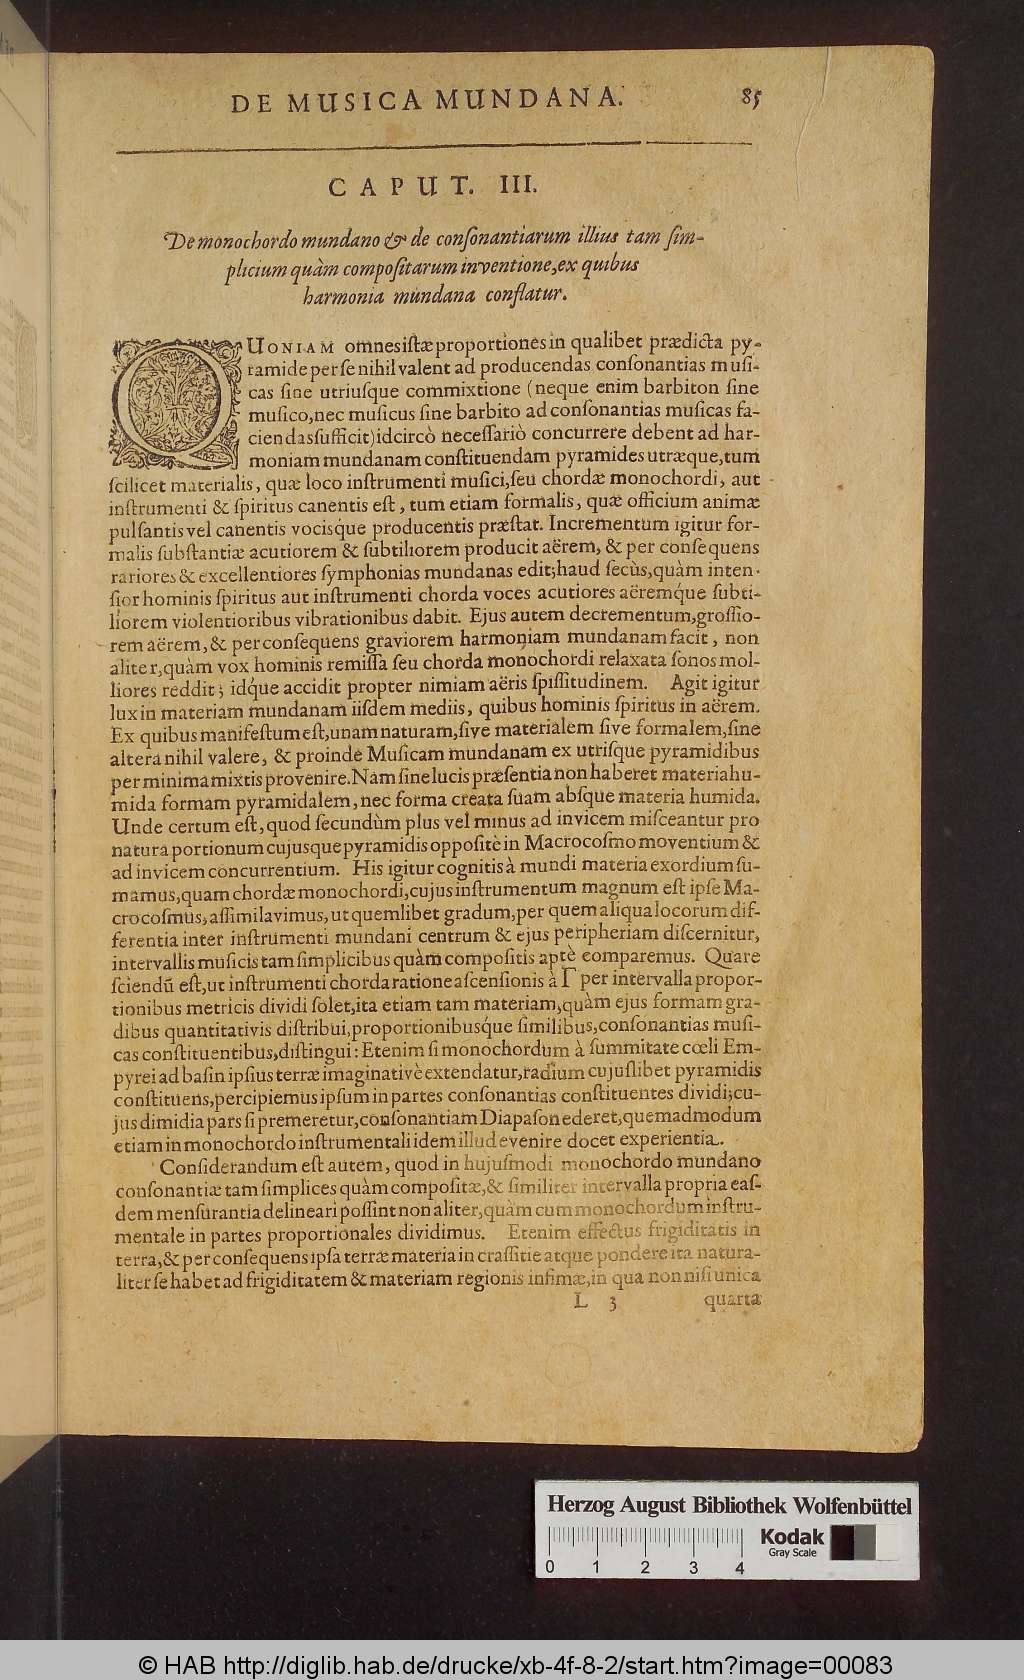 DE MUSICA MUNDANA. 85
CAPUT. III.
De monochordo mundano & de consonantiarum illius tam sim-
plicium quàm compositarum inventione, ex quibus
harmonia mundana conflatur.
QUONIAM omnes istæ proportiones in qualibet prædicta py-
ramide per se nihil valent ad producendas consonantias musi-
cas sine utriusque commixtione (neque enim barbiton sine
musico, nec musicus sine barbito ad consonantias musicas fa-
ciendas sufficit) idcircò necessariò concurrere debent ad har-
moniam mundanam constituendam pyramides utræque, tum
scilicet materialis, quæ loco instrumenti musici, seu chordæ monochordi, aut
instrumenti & spiritus canentis est, tum etiam formalis, quæ officium animæ
pulsantis vel canentis vocisq́ue producentis præstat. Incrementum igitur for-
malis substantiæ acutiorem & subtiliorem producit aërem, & per consequens
rariores & excellentiores symphonias mundanas edit; haud secùs, quàm inten-
sior hominis spiritus aut instrumenti chorda voces acutiores aëremq́ue subti-
liorem violentioribus vibrationibus dabit. Ejus autem decrementum, grossio-
rem aërem, & per consequens graviorem harmoniam mundanam facit, non
aliter, quàm vox hominis remissa seu chorda monochordi relaxata sonos mol-
liores reddit; idq́ue accidit propter nimiam aëris spissitudinem. Agit igitur
lux in materiam mundanam iisdem mediis, quibus hominis spiritus in aërem.
Ex quibus manifestum est, unam naturam, sive materialem sive formalem, sine
altera nihil valere, & proinde Musicam mundanam ex utrisque pyramidibus
per minima mixtis provenire. Nam sine lucis præsentia non haberet materia hu-
mida formam pyramidalem, nec forma creata suam absque materia humida.
Unde certum est, quod secundùm plus vel minus ad invicem misceantur pro
natura portionum cujusque pyramidis oppositè in Macrocosmo moventium &
ad invicem concurrentium. His igitur cognitis à mundi materia exordium su-
mamus, quam chordæ monochordi, cujus instrumentum magnum est ipse Ma-
crocosmus, assimilavimus, ut quemlibet gradum, per quem aliqua locorum dif-
ferentia inter instrumenti mundani centrum & ejus peripheriam discernitur,
intervallis musicis tam simplicibus quàm compositis aptè comparemus. Quare
sciendū est, ut instrumenti chorda ratione ascensionis à Γ per intervalla propor-
tionibus metricis dividi solet, ita etiam tam materiam, quàm ejus formam gra-
dibus quantitativis distribui, proportionibusq́ue similibus, consonantias musi-
cas constituentibus, distingui: Etenim si monochordum à summitate cœli Em-
pyrei ad basin ipsius terræ imaginativè extendatur, radium cujuslibet pyramidis
constituens, percipiemus ipsum in partes consonantias constituentes dividi; cu-
jus dimidia pars si premeretur, consonantiam Diapason ederet, quemadmodum
etiam in monochordo instrumentali idem illud evenire docet experientia.
Considerandum est autem, quod in hujusmodi monochordo mundano
consonantiæ tam simplices quàm compositæ, & similiter intervalla propria eas-
dem mensurantia delineari possint non aliter, quàm cum monochordum instru-
mentale in partes proportionales dividimus. Etenim effectus frigiditatis in
terra, & per consequens ipsa terræ materia in crassitie atque pondere ita natura-
liter se habet ad frigiditatem & materiam regionis infimæ, in qua non nisi unica
L 3 quarta
Herzog August Bibliothek Wolfenbüttel
Kodak
Gray Scale
0 1 2 3 4
© HAB http://diglib.hab.de/drucke/xb-4f-8-2/start.htm?image=00083